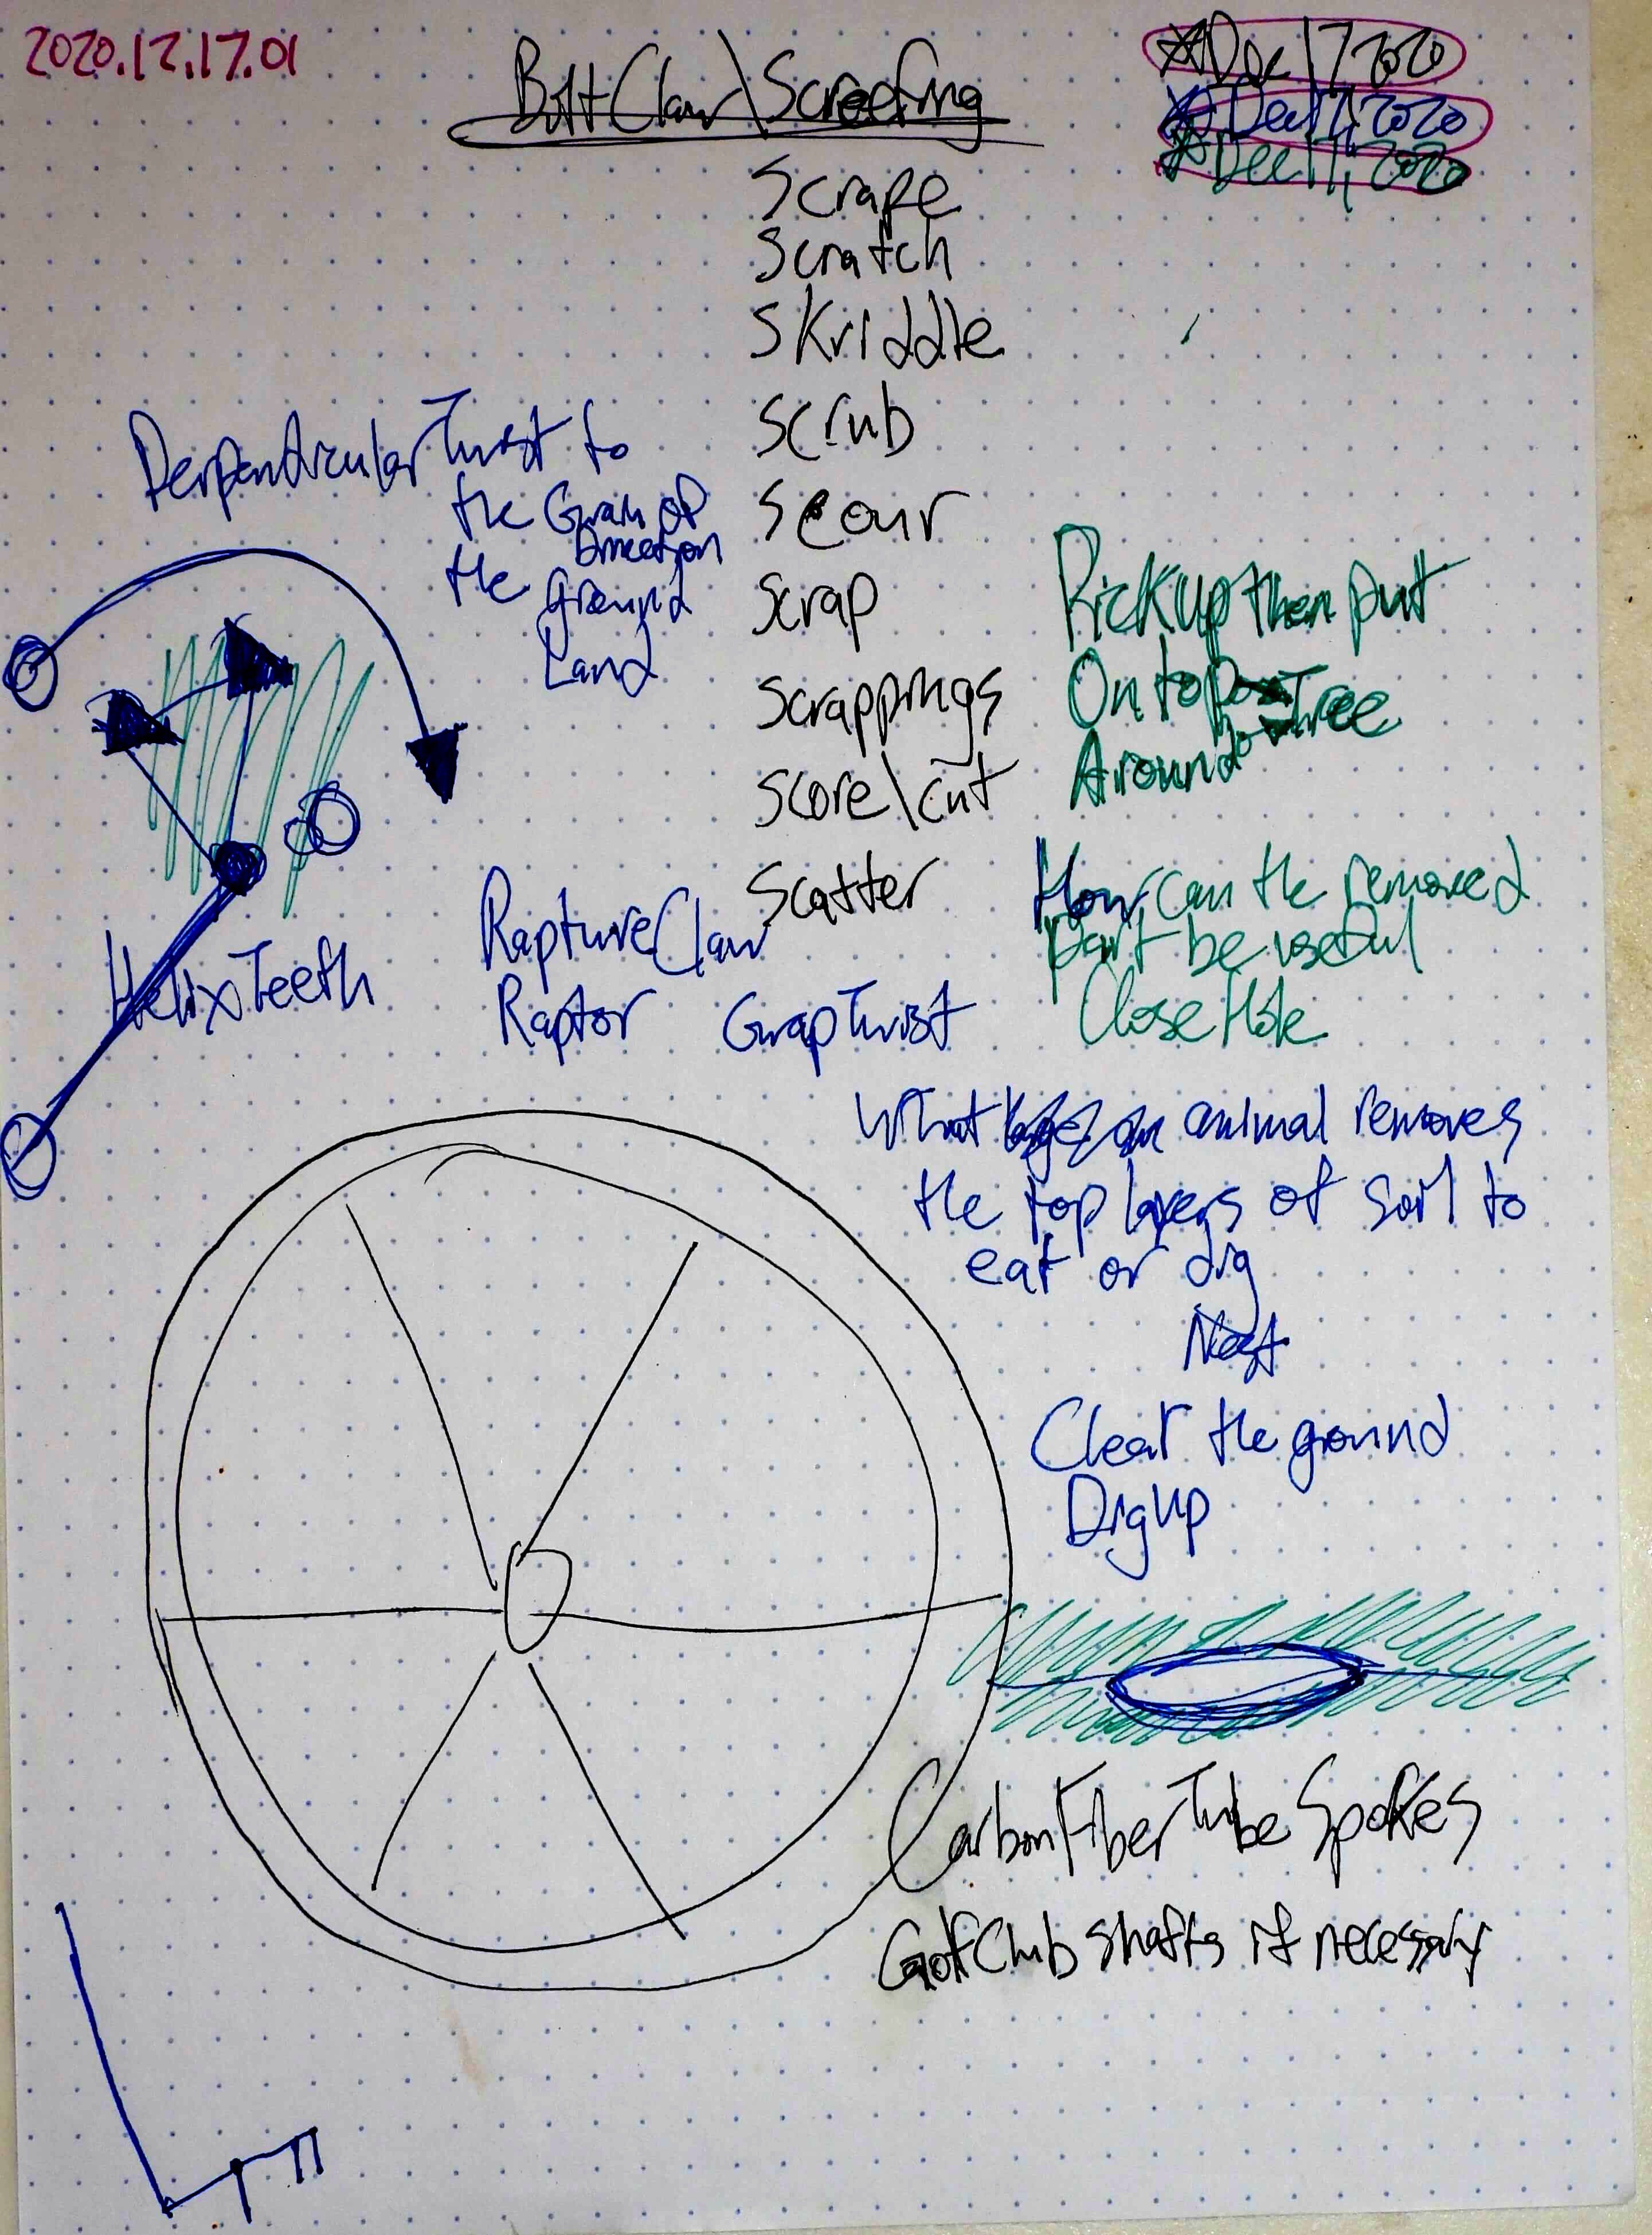 2020.12.17.01
BoltClaw\Screefing
☆Dec 17 2020
☆Dec 17, 2020
☆Dec 17, 2020
Scrape
Scratch
Skriddle
Scrub
Scour
Scrap
Scrappings
Score\cut
Scatter
Perpendicular Twist to
the Grain of
Direction
the Ground
Land
Pick Up then put
On top Tree
Around
How can the removed
part be useful
Close Hole
Helix Teeth
Rapture Claw
Raptor
Grap Twist
What animal removes
the top layers of soil to
eat or dig
Nest
Clear the ground
Dig Up
Carbon Fiber Tube Spokes
Golf Club shafts if necessary